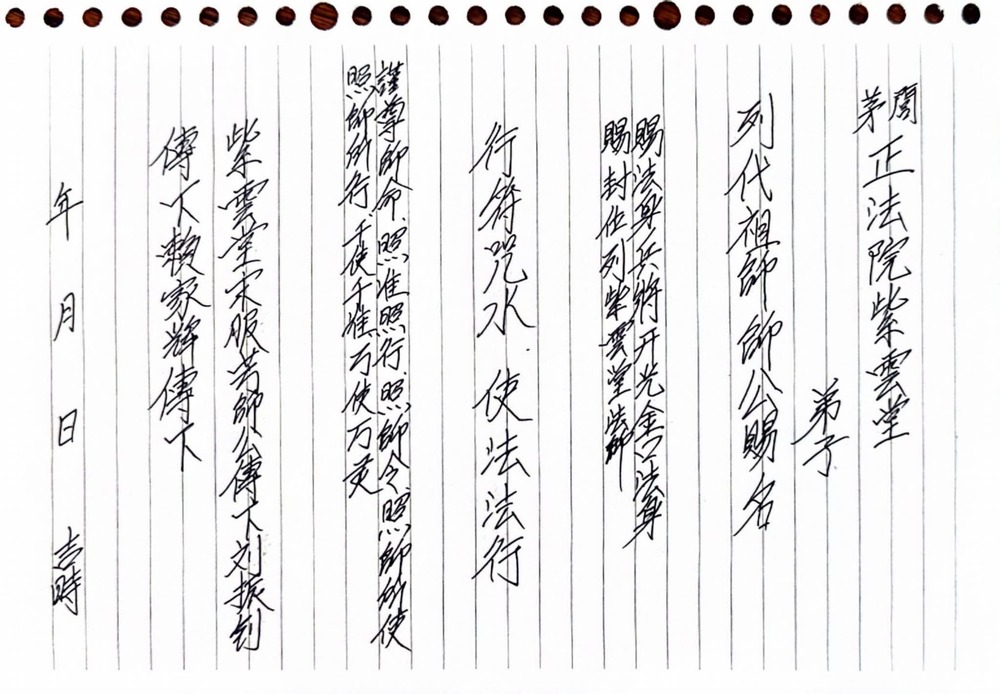 閭茅正法院紫雲堂
弟子
列代祖師師公賜名
賜法身兵將开光金口法身
賜封位列紫雲堂法師
行符咒水.使法法行
謹尊師命.照准照行.照師令.照師所使
照師所行.千使千准万使万灵
紫雲堂宋服芳師公傳下刘振钊
傳下賴家輝傳下
年 月 日 吉時